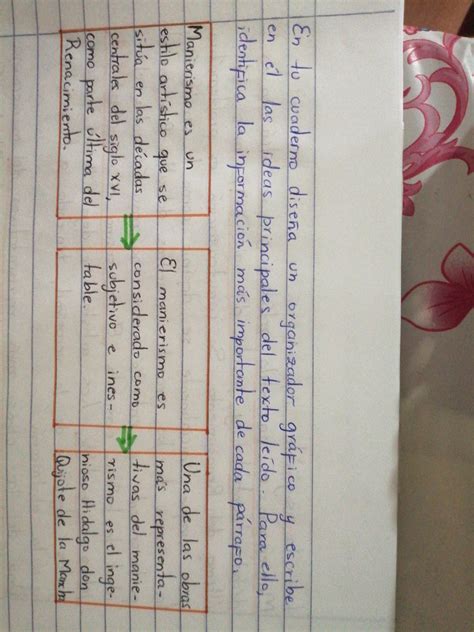 En tu cuaderno diseña un organizador gráfico y escribe
en él las ideas principales del texto leído. Para ello,
identifica la información más importante de cada párrafo.
Manierismo es un
estilo artístico que se
sitúa en las décadas
centrales del siglo XVI,
como parte última del
Renacimiento.
El manierismo es
considerado como
subjetivo e ines-
table.
Una de las obras
más representa-
tivas del manie-
rismo es el inge-
nioso Hidalgo don
Quijote de la Mancha